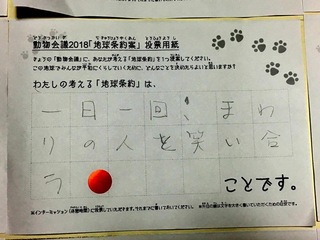 動物会議2018「地球条約案」投票用紙
きょうの「動物会議」に、あなたが考える「地球条約」を1つ提案してください。
この地球でみんなが平和にくらしていくために、どんなことを決めたらよいと思いますか?
わたしの考える「地球条約」は、
一日一回、まわ
りの人を笑い合
う
ことです。